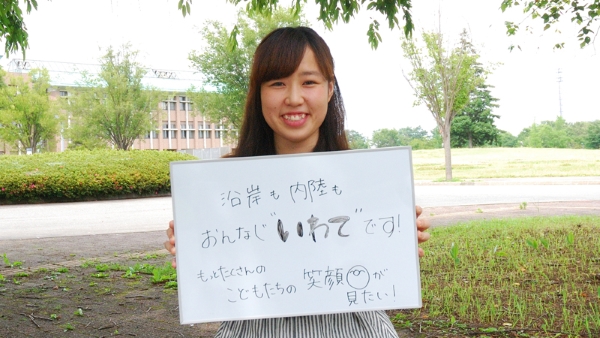 沿岸も内陸も
おんなじ"いわて"です!
もっとたくさんの
こどもたちの笑顔が
見たい!